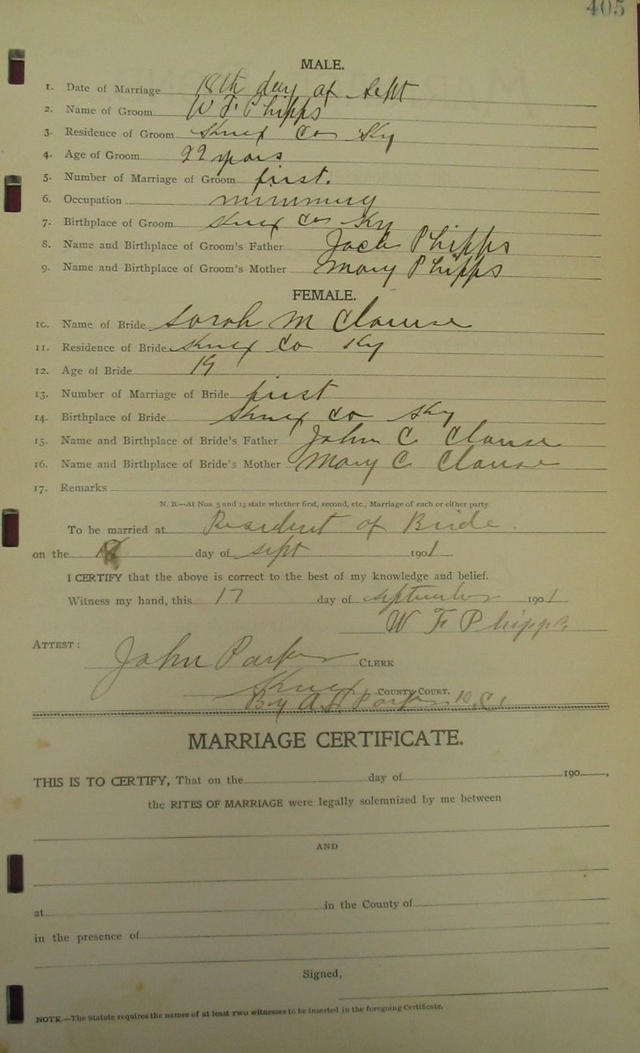 405
MALE.
1. Date of Marriage 18th day of Sept
2. Name of Groom W F Phipps
3. Residence of Groom Knox Co Ky
4. Age of Groom 22 years
5. Number of Marriage of Groom first.
6. Occupation
7. Birthplace of Groom Knox Co Ky
8. Name and Birthplace of Groom's Father Jack Phipps
9. Name and Birthplace of Groom's Mother Mary Phipps
FEMALE.
10. Name of Bride Sarah M Clouse
11. Residence of Bride Knox Co Ky
12. Age of Bride 19
13. Number of Marriage of Bride first
14. Birthplace of Bride Knox Co Ky
15. Name and Birthplace of Bride's Father John C Clouse
16. Name and Birthplace of Bride's Mother Mary C Clouse
17. Remarks
N. B.—At Nos. 5 and 13 state whether first, second, etc., Marriage of each or either party.
To be married at Resident of Bride.
on the 18 day of Sept 1901
I CERTIFY that the above is correct to the best of my knowledge and belief.
Witness my hand, this 17 day of September 1901
W F Phipps
ATTEST:
John Parker CLERK
Knox COUNTY COURT.
By Parker D.C.
MARRIAGE CERTIFICATE.
THIS IS TO CERTIFY, That on the day of 190 ,
the RITES OF MARRIAGE were legally solemnized by me between
AND
at in the County of
in the presence of
Signed,
NOTE.—The Statute requires the names of at least two witnesses to be inserted in the foregoing Certificate.